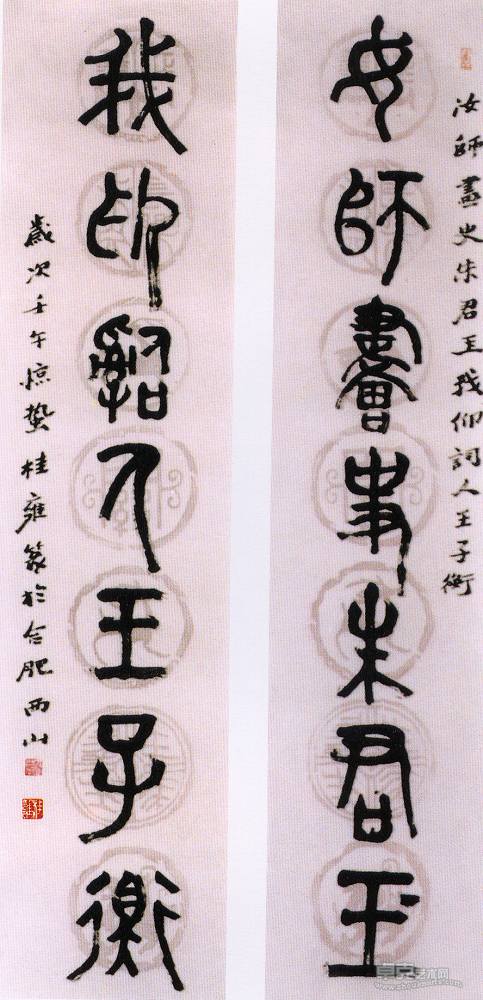 汝師畫史朱君玉我仰詞人王子衡
女師畫史朱君玉
我卬詞人王子衡
歲次壬午惊蟄桂雍篆於合肥西山
卓克艺术网